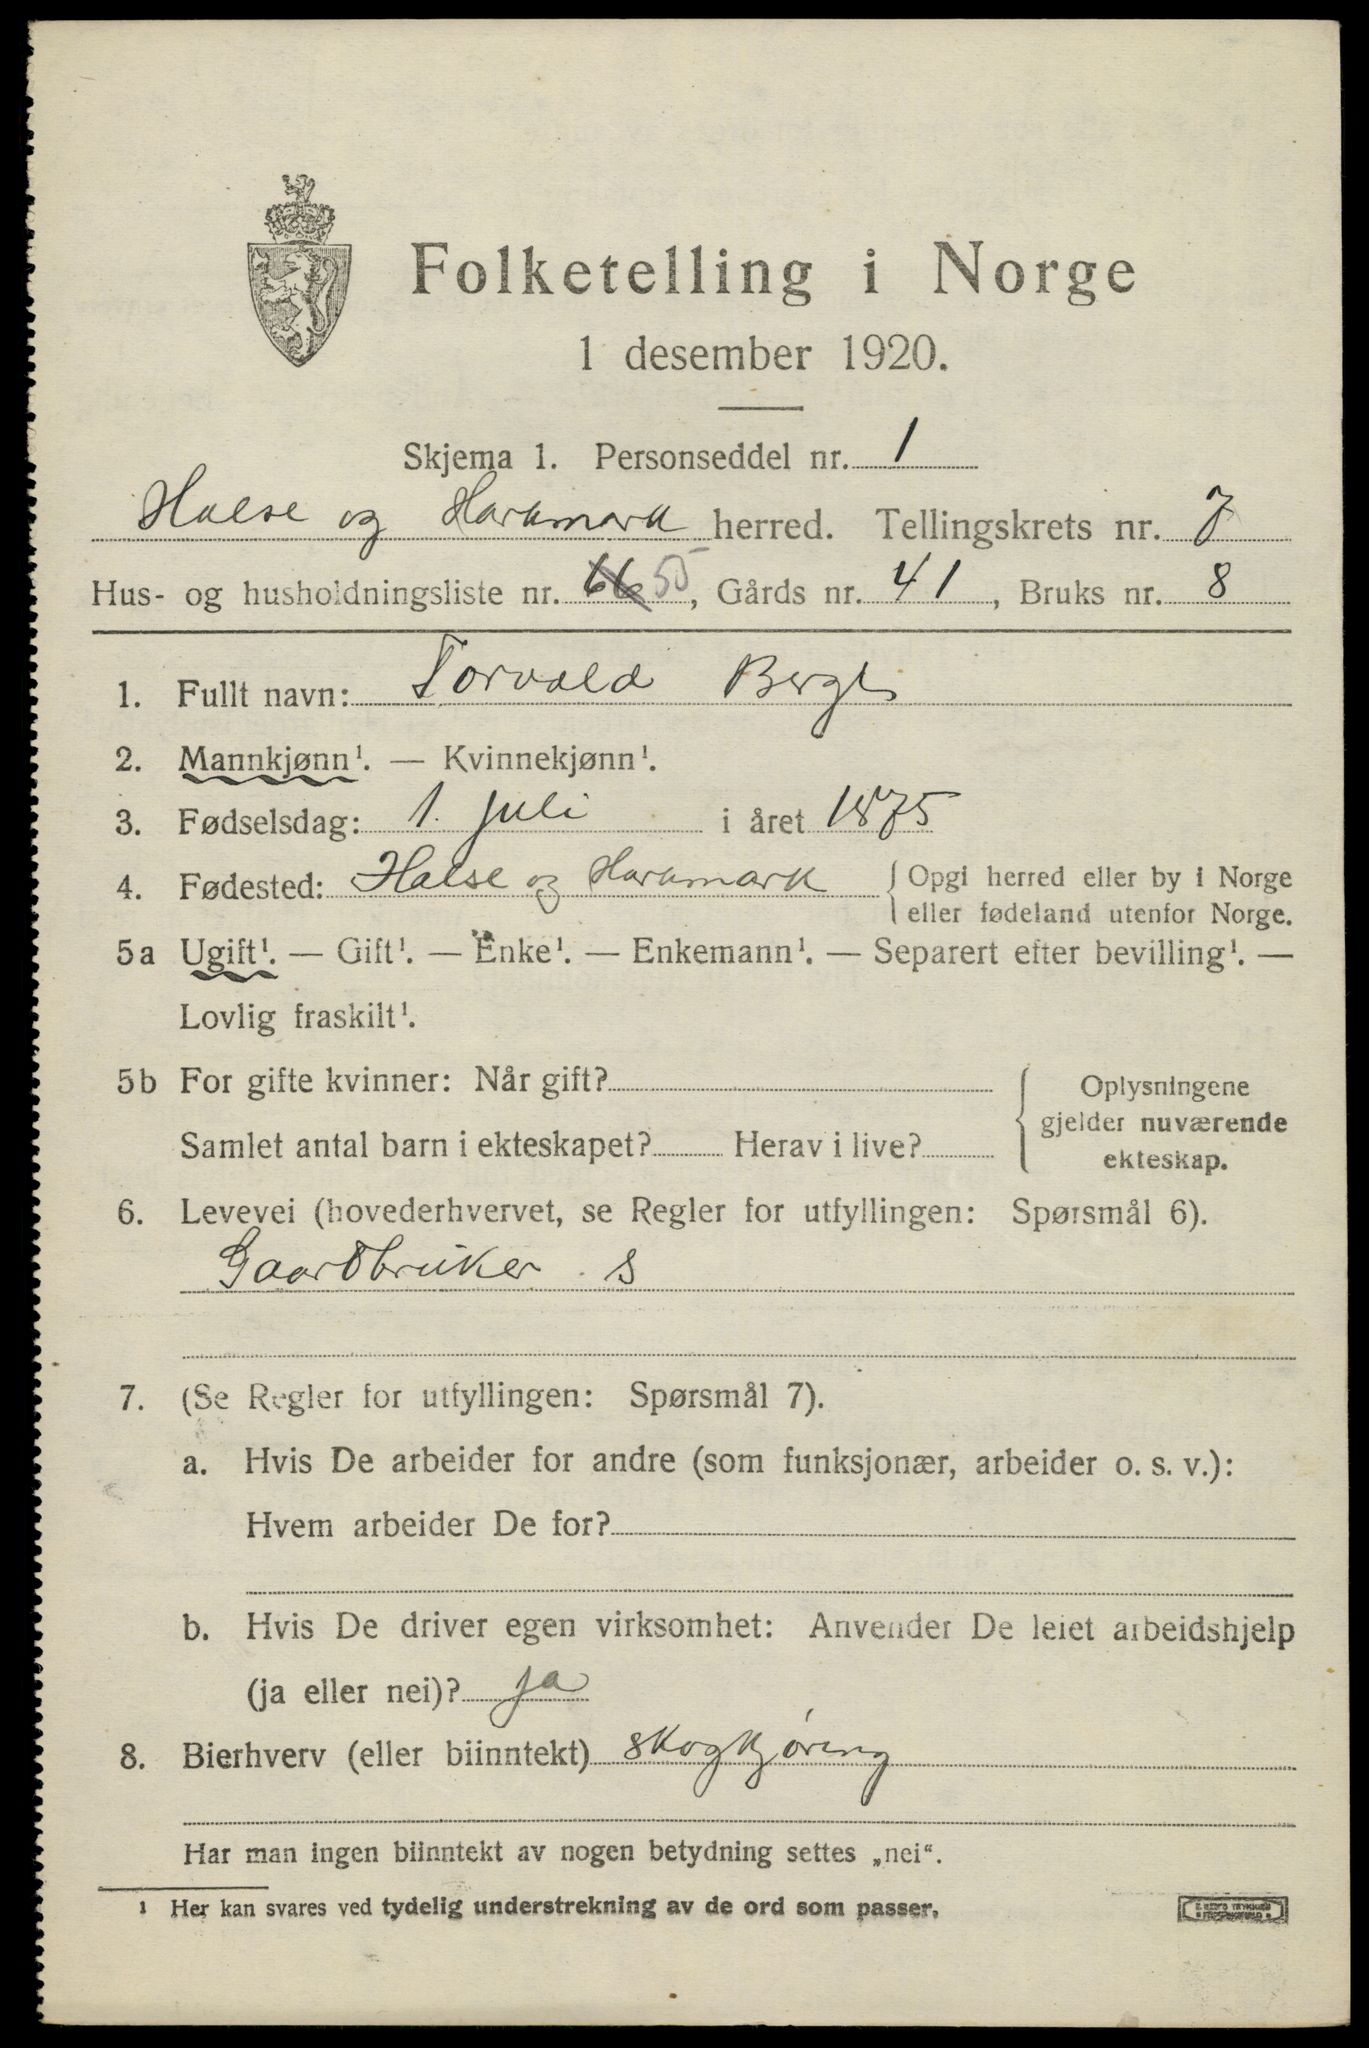 Folketelling i Norge
1 desember 1920.
Skjema 1. Personseddel nr. 1
Halse og Harkmark herred. Tellingskrets nr. 7
Hus- og husholdningsliste nr. 66 55, Gårds nr. 41, Bruks nr. 8
1. Fullt navn: Torvald Berge
2. Mannkjønn¹. — Kvinnekjønn¹.
3. Fødselsdag: 1. juli i året 1875
4. Fødested: Halse og Harkmark { Opgi herred eller by i Norge
eller fødeland utenfor Norge.
5a Ugift¹. — Gift¹. — Enke¹. — Enkemann¹. — Separert efter bevilling¹. —
Lovlig fraskilt¹.
5b For gifte kvinner: Når gift? { Oplysningene
gjelder nuværende
Samlet antal barn i ekteskapet? Herav i live?
ekteskap.
6. Levevei (hovederhvervet, se Regler for utfyllingen: Spørsmål 6).
Gaardbruker s
7. (Se Regler for utfyllingen: Spørsmål 7).
a. Hvis De arbeider for andre (som funksjonær, arbeider o. s. v.):
Hvem arbeider De for?
b. Hvis De driver egen virksomhet: Anvender De leiet arbeidshjelp
(ja eller nei)? ja
8. Bierhverv (eller biinntekt) skogkjøring
Har man ingen biinntekt av nogen betydning settes „nei“.
¹ Her kan svares ved tydelig understrekning av de ord som passer.